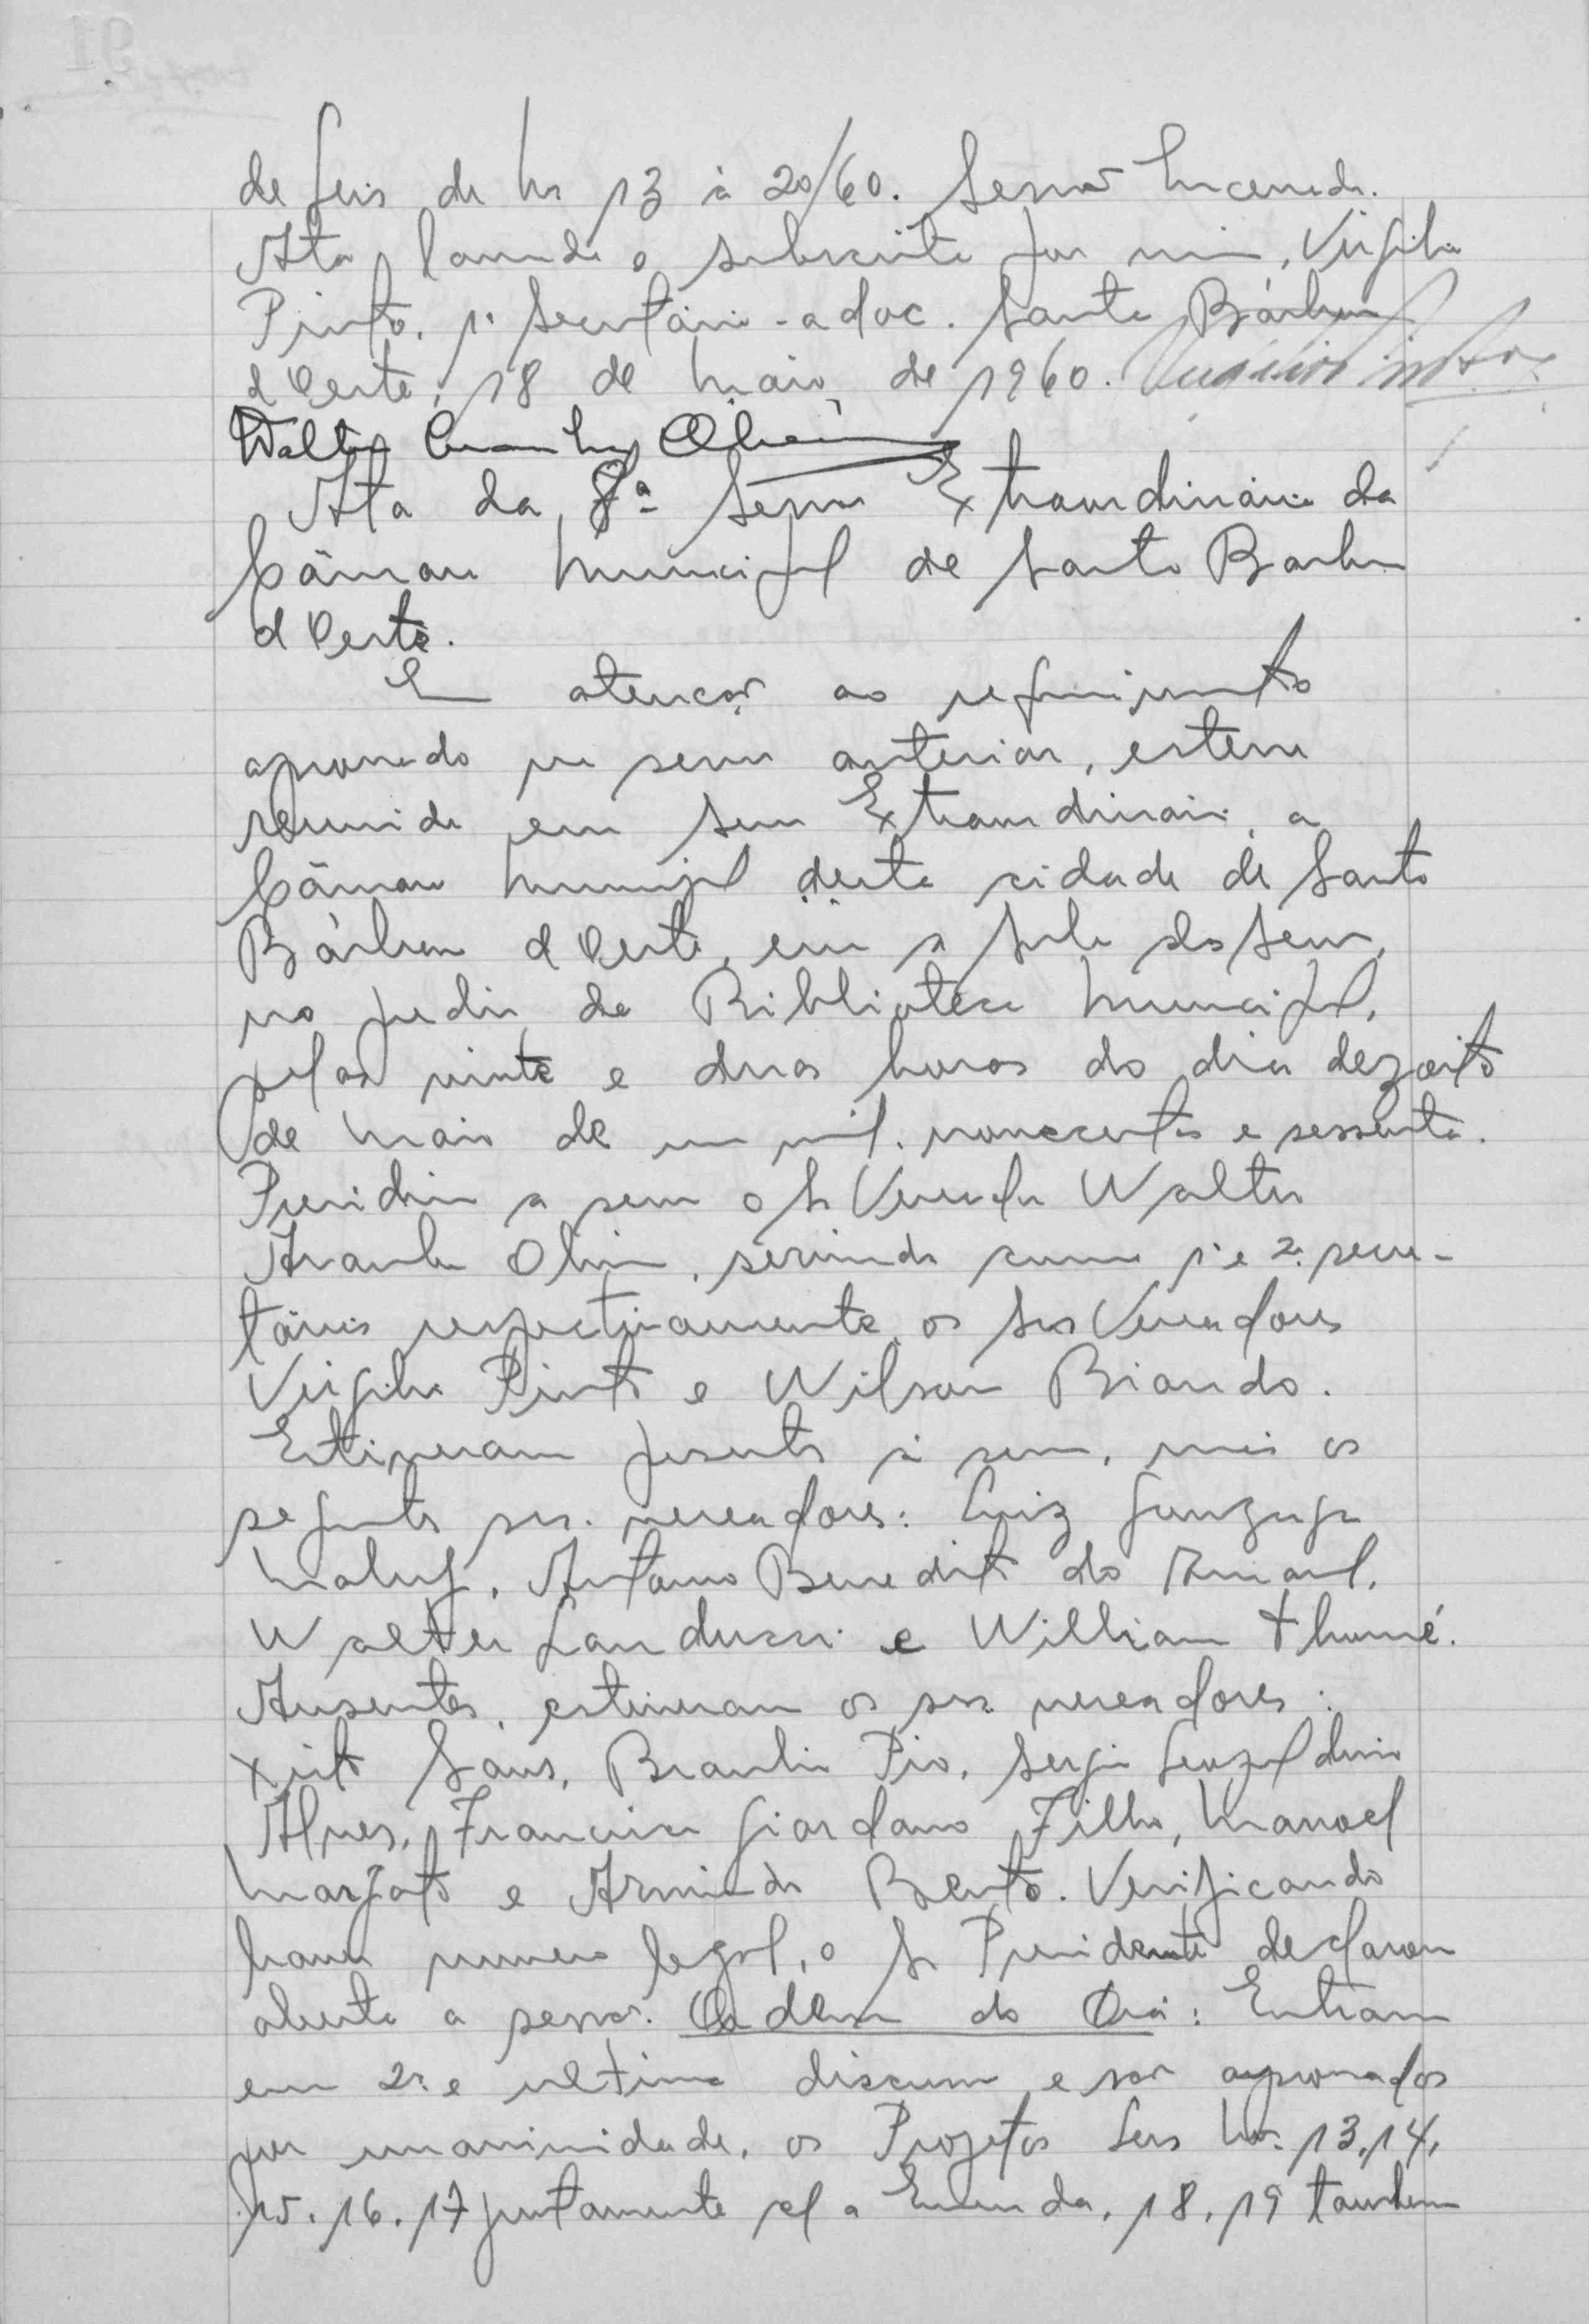 de Leis de Nrs 13 à 20/60. Sessão Encerrada.
Ata lavrada e subscrita por mim, Virgilio
Pinto, 1º Secretário - adoc. Santa Bárbara
d'Oeste, 18 de Maio de 1960. Virgilio Pinto
Walter Oliveira
Ata da 8ª Sessão Extraordinária da
Câmara Municipal de Santa Barbara
d Oeste.
Em atenção ao requerimento
aprovado na sessão anterior, esteve
reunida em sessão Extraordinária, a
Câmara Municipal desta cidade de Santa
Bárbara d Oeste, em a sala das Sessões,
no predio da Biblioteca Municipal,
pelas vinte e duas horas do dia dezoito
de Maio de um mil, novecentos e sessenta.
Presidiu a sessão o Sr Vereador Walter
Aranha Oliveira, servindo como 1º e 2º secre-
tários respectivamente, os Srs Vereadores
Virgilio Pinto e Wilson Biondo.
Estiveram presentes à sessão, mais os
seguintes srs. vereadores: Luiz Gonzaga
Maluf, Antônio Benedito do Amaral,
Walter Landucci e William Thomé.
Ausentes, estiveram os srs vereadores:
Xisto Sans, Braulio Pio, Sergio Alves, Francisco Giordano Filho, Manoel
Margato e Armindo Bento. Verificando
haver numero legal, o Sr Presidente declarou
aberta a sessão. Ordem do Dia: Entram
em 2ª e ultima discussão e são aprovados
por unanimidade, os Projetos Leis Nrs. 13, 14,
15, 16, 17 juntamente c/ a Emenda, 18, 19 tambem